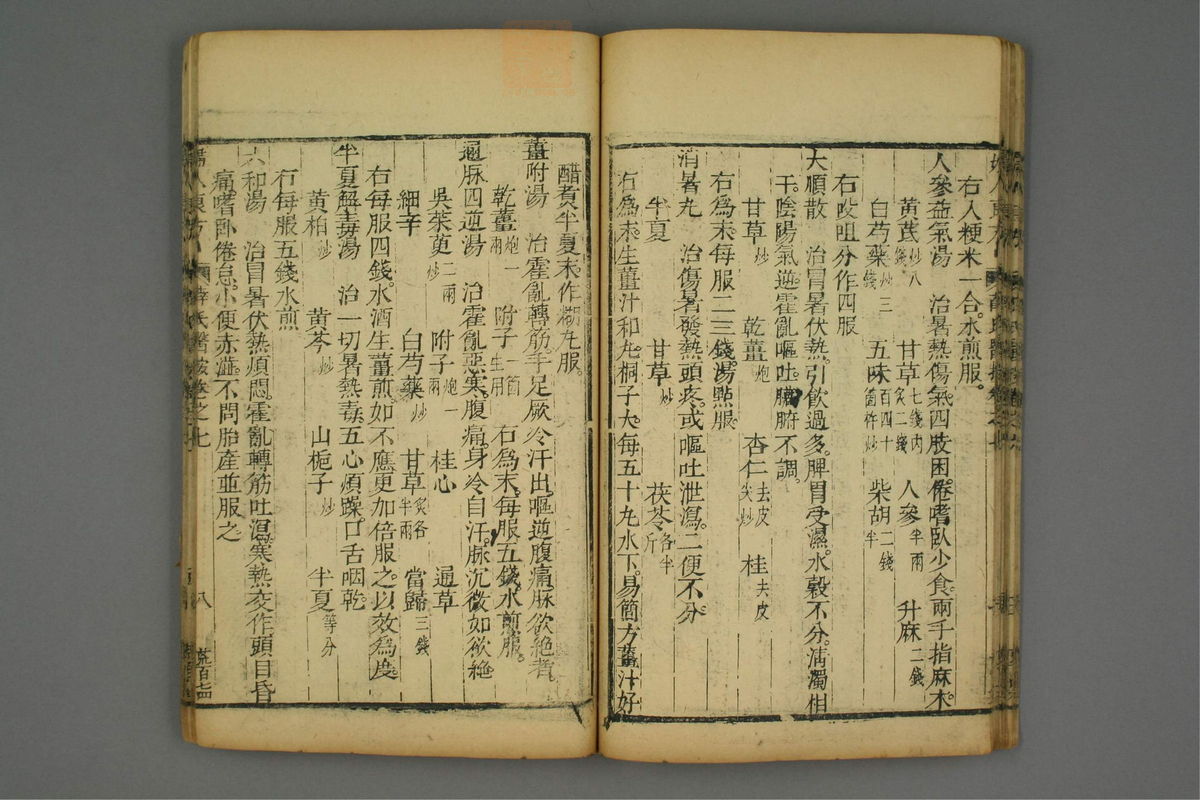 右入粳米一合水煎服。
人參益氣湯　治暑熱傷氣四肢困倦嗜臥少食兩手指麻木。
黃芪炒八錢　甘草七錢內炙二錢　人參半兩　升麻二錢
白芍藥炒三錢　五味百四十箇杵炒　柴胡二錢半
右㕮咀分作四服
大順散　治冒暑伏熱。引飲過多。脾胃受濕。水穀不分。淸濁相
干。陰陽氣逆。霍亂嘔吐。臟腑不調。
甘草炒　乾薑炮　杏仁去皮尖炒　桂去皮
右爲末。每服二三錢。湯點服。
消暑丸　治傷暑發熱頭疼。或嘔吐泄瀉。二便不分。
半夏　甘草炒　茯苓各半斤
右爲末。生薑汁和丸。桐子大。每五十丸水下。易簡方薑汁好
醋煮半夏末。作糊丸服。
薑附湯　治霍亂轉筋。手足厥冷汗出。嘔逆腹痛。脉欲絶者。
乾薑炮一兩　附子一箇生用　右爲末。每服五錢水煎服。
通脉四逆湯　治霍亂惡寒。腹痛。身冷自汗。脉沉微如欲絶。
吳茱萸炒二兩　附子炮一兩　桂心　通草
細辛　白芍藥炒　甘草炙各半兩　當歸三錢
右每服四錢。水酒生薑煎。如不應更加倍服之。以效爲度。
半夏解毒湯　治一切暑熱毒。五心煩躁。口舌咽乾。
黃柏炒　黃芩炒　山梔子炒　半夏等分
右每服五錢水煎
六和湯　治冒暑伏熱煩悶。霍亂轉筋吐瀉。寒熱交作頭目昏
痛。嗜臥倦怠。小便赤澁。不問胎產並服之。
婦人良方　薛氏醫案卷之七　八